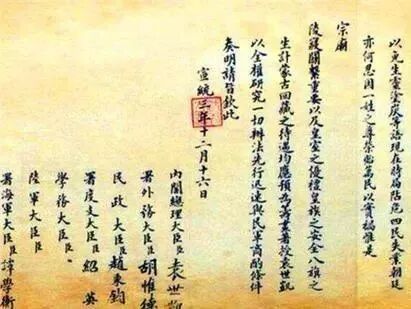 以免生靈塗炭等語現在時局阽危四民失業朝廷
亦何忍因一姓之尊榮貽萬民以實禍惟是
宗廟
陵寢關繫重要以及皇室之優禮皇族之安全八旗之
生計蒙古回藏之待遇均應預為籌畫著授袁世凱
以全權研究一切辦法先行迅速與民軍商酌條件
奏明請旨欽此
宣統三年十二月十六日
內閣總理大臣臣袁世凱
署外務大臣臣胡惟德
民政大臣臣趙秉鈞
署度支大臣臣紹英
學務大臣臣
陸軍大臣臣
署海軍大臣臣譚學衡